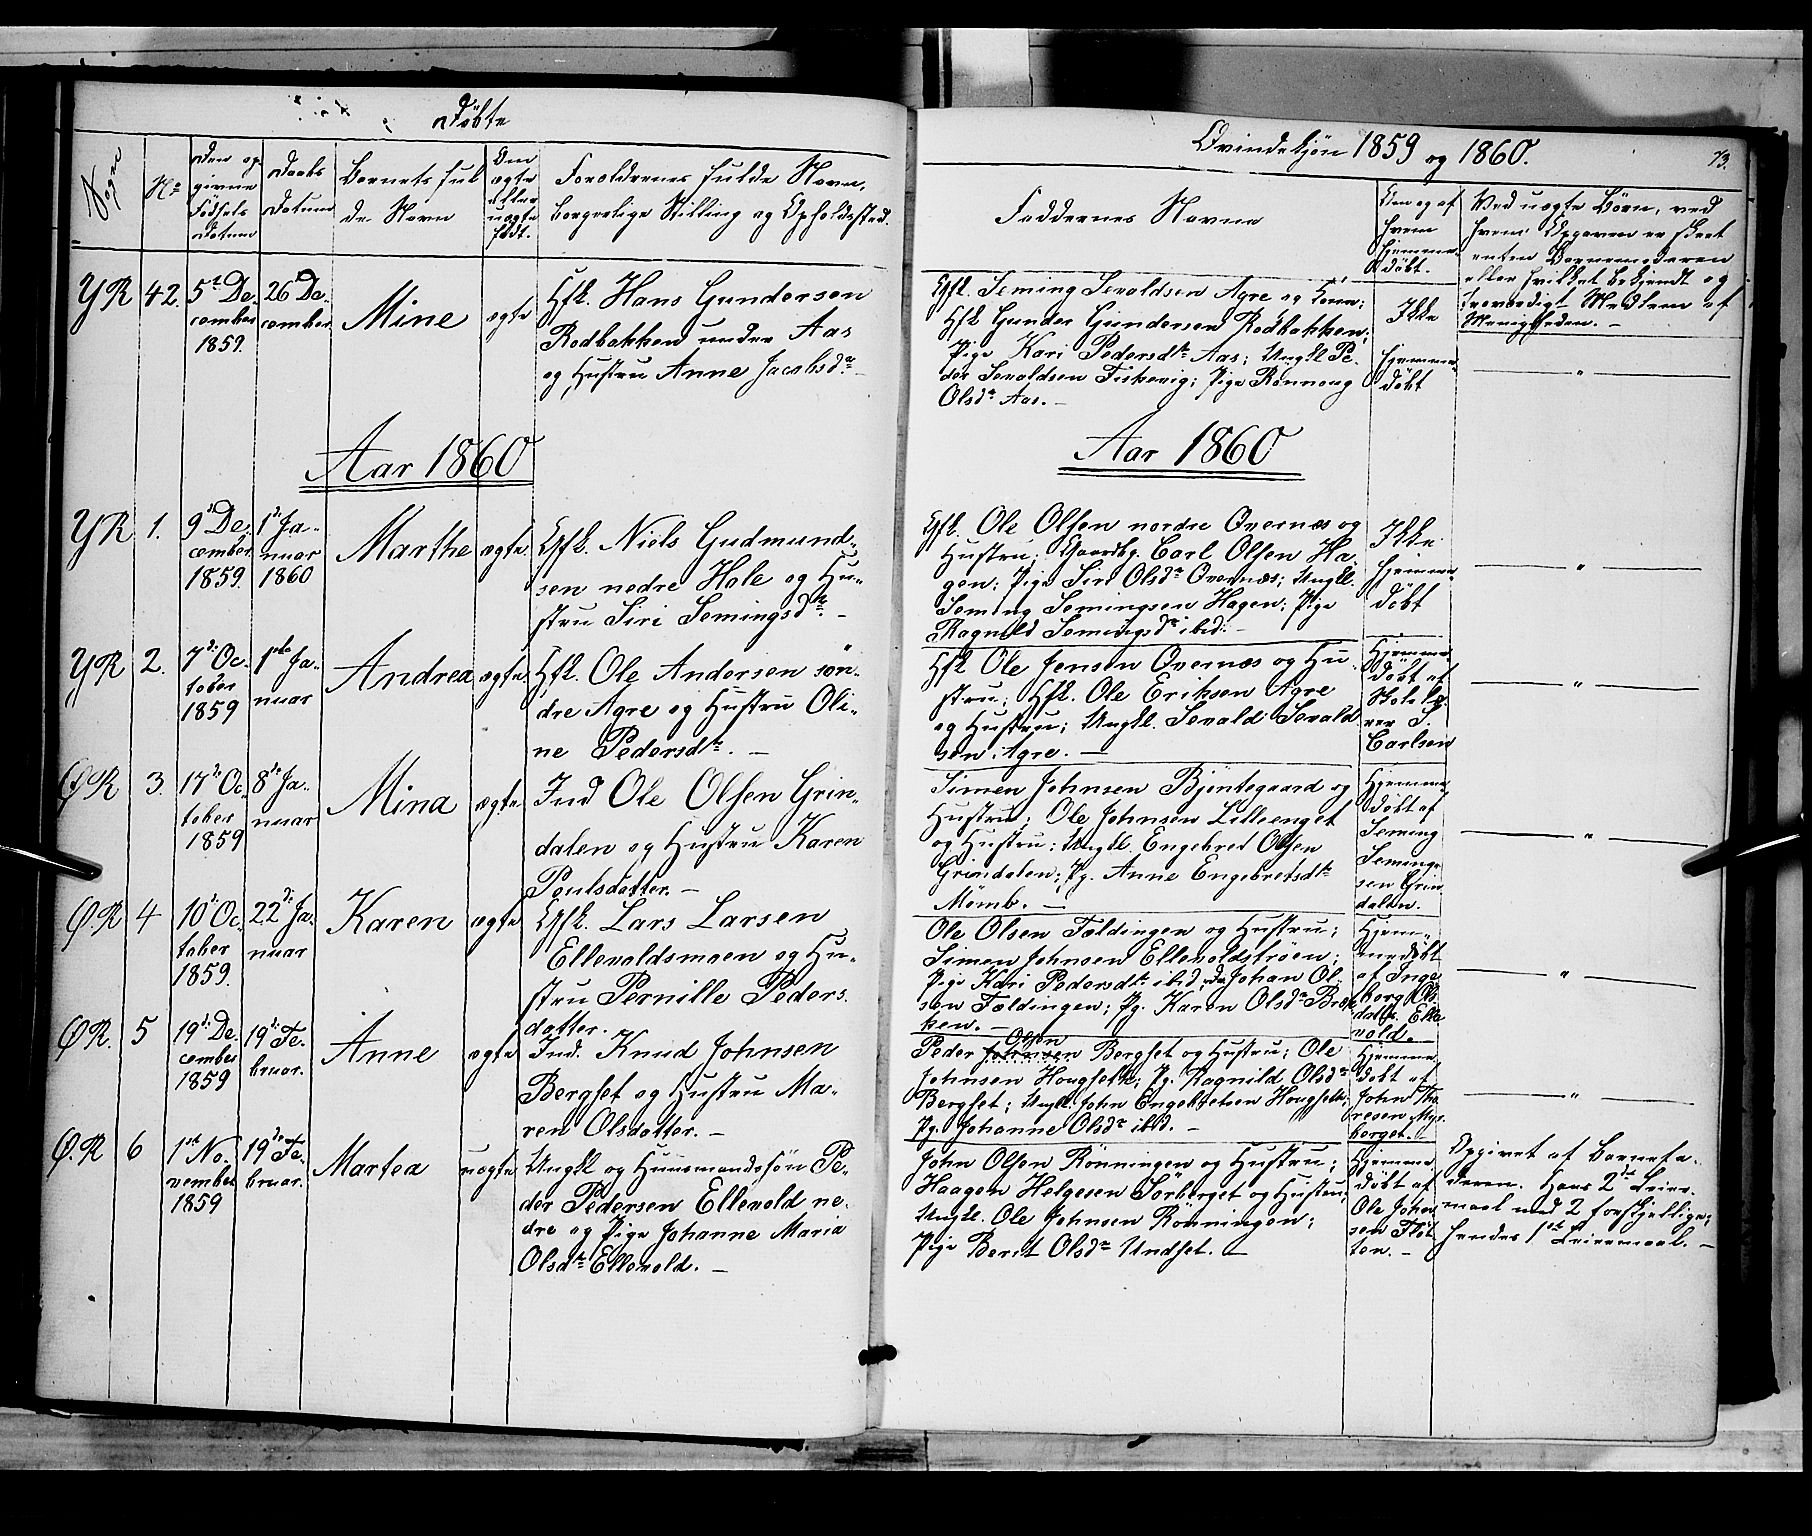 Døbte
Qvindekjøn 1859 og 1860.
73.
Sogne
No
Den op
givne
Fødsels
Datum
Daabs
Datum
Barnets ful
de Navn
Om
ægte
eller
uægte
født.
Forældrenes fulde Navn,
borgerlige Stilling og Opholdssted.
Faddernes Navne
Om og af
hvem
hjemme-
døbt.
Ved uægte Børn, ved
hvem Opgaven er skeet
enten Barnemoderen
eller hvilket bekjendt og
troværdigt Medlem af
Menigheden. —
YR 42. 5te De-
cember
1859.
26 De-
cember
Mine
ægte
Gfk. Hans Gundersen
Rødbakken under Aas
og Hustru Anne Jacobsdr
Gfk. Seming Sevaldsen Agre og Kone;
Hfk Gunder Gundersen Rødbakken;
Pige Kari Pedersdtr Aas; Ungkl Pe-
der Sevaldsen Fiskevig; Pige Rønnaug
Olsdr Aas. —
Ikke
hjemme-
døbt
— " —
Aar 1860
Aar 1860
YR 1. 9de De-
cember
1859.
1ste Ja-
nuar
1860
Marthe
ægte
Gfk. Niels Gudmund-
sen nedre Hole og Hu-
stru Siri Semingsdtr. —
Gfk. Ole Olsen nordre Overnæs og
Hustru; Gaardbg. Carl Olsen Ha-
gen; Pige Siri Olsdr Overnæs; Ungkl.
Seming Semingsen Hagen; Pige
Ragnild Semingsdr ibid. —
Ikke
hjemme-
døbt
— " —
YR 2. 7de Oc-
tober
1859
1ste Ja-
nuar
Andrea
ægte
Hfk. Ole Andersen søn-
dre Agre og Hustru Oli-
ne Pedersdtr. —
Hfk Ole Jensen Overnæs og Hu-
stru; Hfk. Ole Eriksen Agre
og Hustru; Ungkl. Sevald Sevald-
sen Agre. —
Hjemme
døbt af
Skolelæ-
rer S.
Carlsen
— " —
ØR 3. 17de Oc-
tober
1859
8de Ja-
nuar
Mina
ægte
Ind Ole Olsen Grin-
dalen og Hustru Karen
Poulsdatter. —
Simen Johnsen Bjøntegaard og
Hustru; Ole Johnsen Lilleenget
og Hustru; Ungkl. Engebret Olsen
Grindalen; Pg. Anne Engebretsdtr
Mømb. —
Hjemme
døbt af
Seming
Seming-
sen Grin
dalen.
— " —
Ø.R 4 10de Oc-
tober
1859.
22de Ja-
nuar
Karen
ægte
Gfk. Lars Larsen
Ellevoldsmoen og Hu-
stru Pernille Peders-
datter.
Ole Olsen Foldingen og Hustru;
Simen Johnsen Ellevoldstrøen;
Pige Kari Pedersdtr ibid; do Johan Ol-
sen Foldingen; Pg. Karen Olsdr Bræk-
ken. —
Hjem-
medøbt
af Inge-
borg Ols
datr. Elle
vold. —
— " —
ØR. 5 19de De-
cember
1859
19de Fe-
bruar.
Anne
ægte
Ind. Knud Johnsen
Bergset og Hustru Ma-
ren Olsdatter. —
Peder Johnsen Olsen Bergset og Hustru; Ole
Johnsen Hougsette; Pg. Ragnild Olsdr
Bergset; Ungkl. John Engebretsen Hougsette;
Pg. Johanne Olsdr ibid. —
Hjemme
døbt af
John Tho-
resen Myr-
berget. —
— " —
Ø.R 6 1ste No-
vember
1859
19de Fe-
bruar.
Martea
uægte
Ungkl og Huusmandssøn Pe-
der Pedersen Ellevold ne-
dre og Pige Johanne Maria
Olsdtr Ellevold. —
John Olsen Rønningen og Hustru;
Haagen Helgesen Sørberget og Hustru;
Ungkl. Ole Johnsen Rønningen;
Pige Berit Olsdr Undset. —
Hjemme
døbt af
Ole John
sen Fløt-
ten. —
Opgivet af Barnefa-
deren. Hans 2det Leier-
maal med 2 forskjellige;
hendes 1ste Leiermaal. —